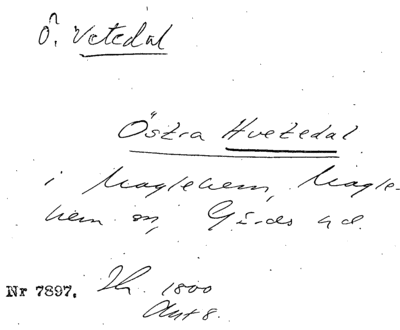 Ö. Vetedal
Östra Hvetedal
i Maglehem, Magle-
hem sn, Gärds hd.
Nr 7897. 1800